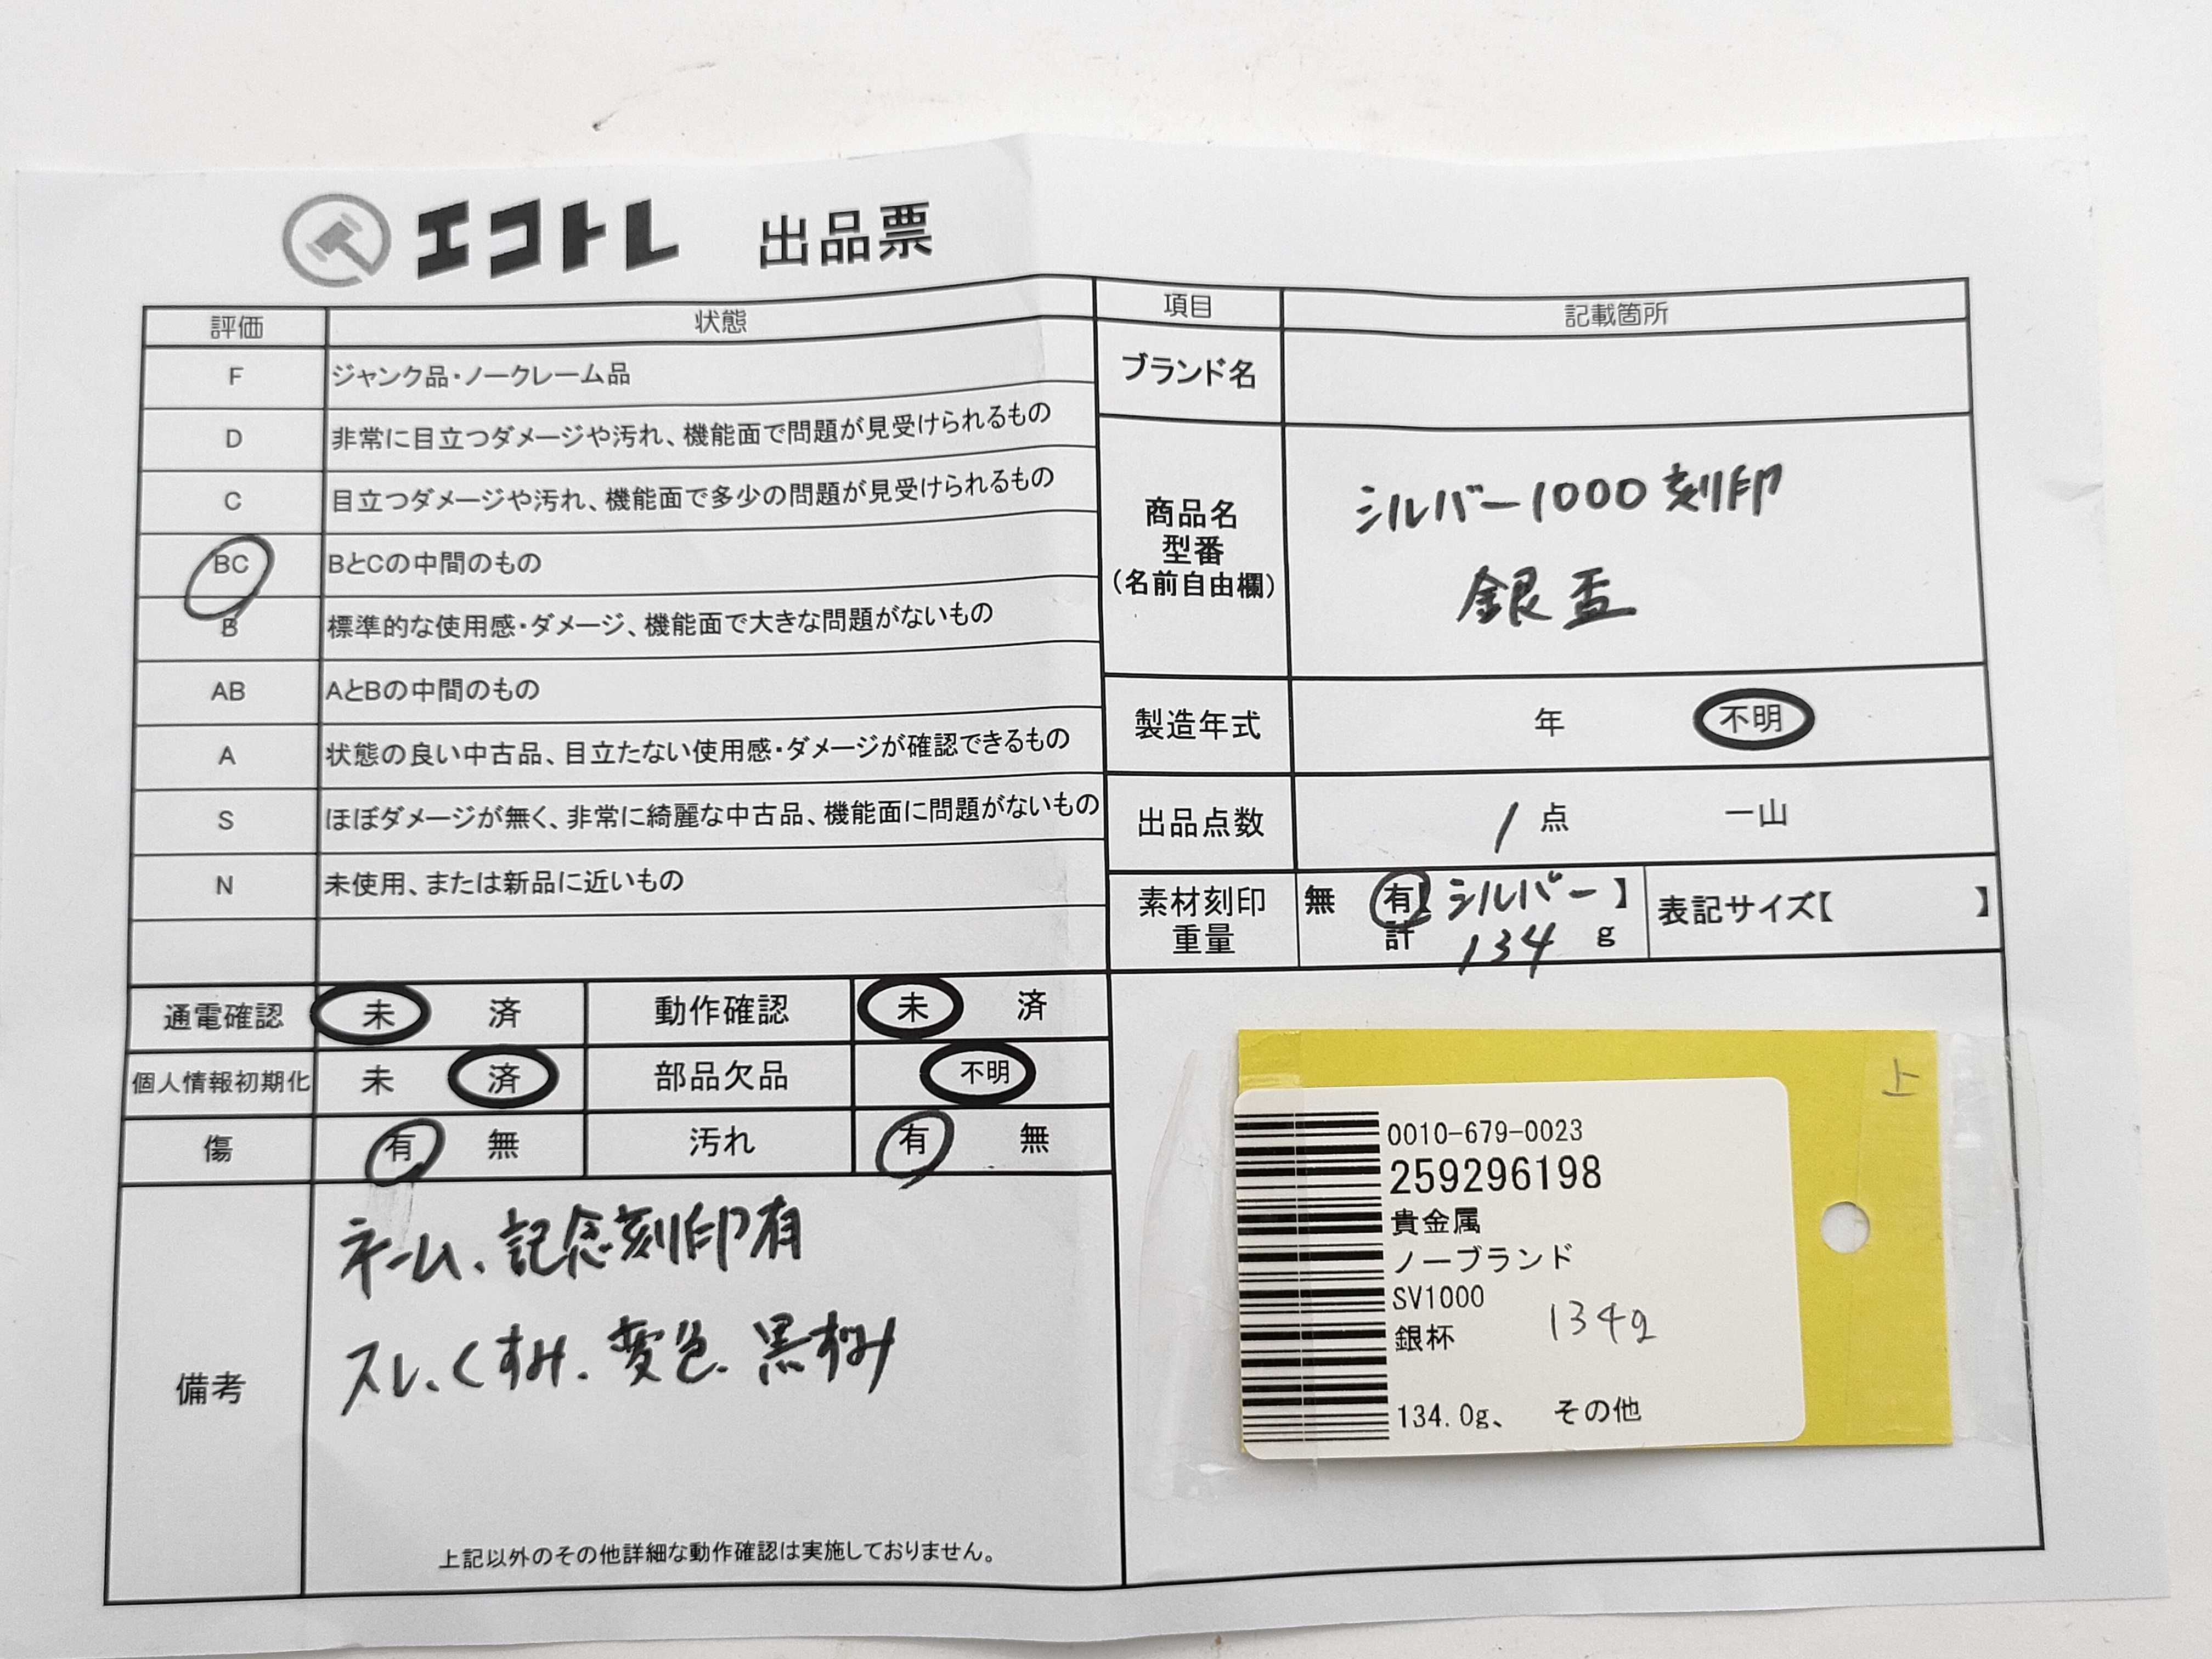 エコトレ 出品票
評価 状態
F ジャンク品・ノークレーム品
D 非常に目立つダメージや汚れ、機能面で問題が見受けられるもの
C 目立つダメージや汚れ、機能面で多少の問題が見受けられるもの
BC BとCの中間のもの
B 標準的な使用感・ダメージ、機能面で大きな問題がないもの
AB AとBの中間のもの
A 状態の良い中古品、目立たない使用感・ダメージが確認できるもの
S ほぼダメージが無く、非常に綺麗な中古品、機能面に問題がないもの
N 未使用、または新品に近いもの
通電確認 未 済 動作確認 未 済
個人情報初期化 未 済 部品欠品 不明
傷 有 無 汚れ 有 無
備考
ネーム、記念刻印有
スレ、くすみ、変色、黒ずみ
上記以外のその他詳細な動作確認は実施しておりません。
項目 記載箇所
ブランド名
商品名
型番
(名前自由欄)
シルバー1000刻印
銀盃
製造年式 年 不明
出品点数 1点 一山
素材刻印 無 有【シルバー】
重量 計 134 g
表記サイズ【 】
上
0010-679-0023
259296198
貴金属
ノーブランド
SV1000
銀杯 134g
134.0g、 その他